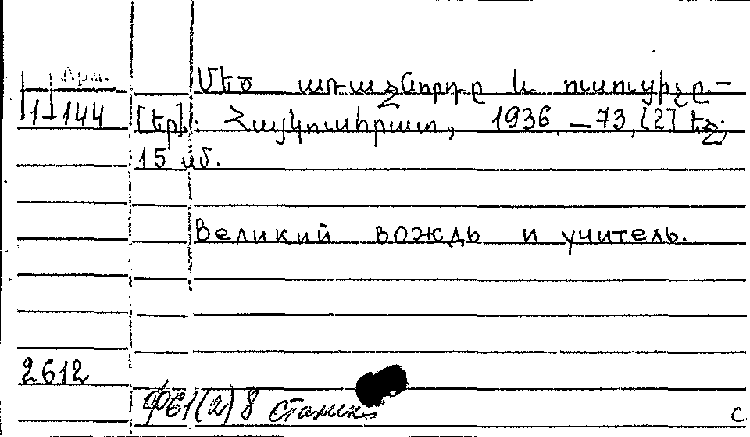 Մեծ առաջնորդը և ուսուցիչը —
1-144 [Եր]: Հայկուսհրատ, 1936. — 73, [2] եջ;
15 սմ.
Великий вождь и учитель.
2612
ФБ1(2)8 Сталин
с